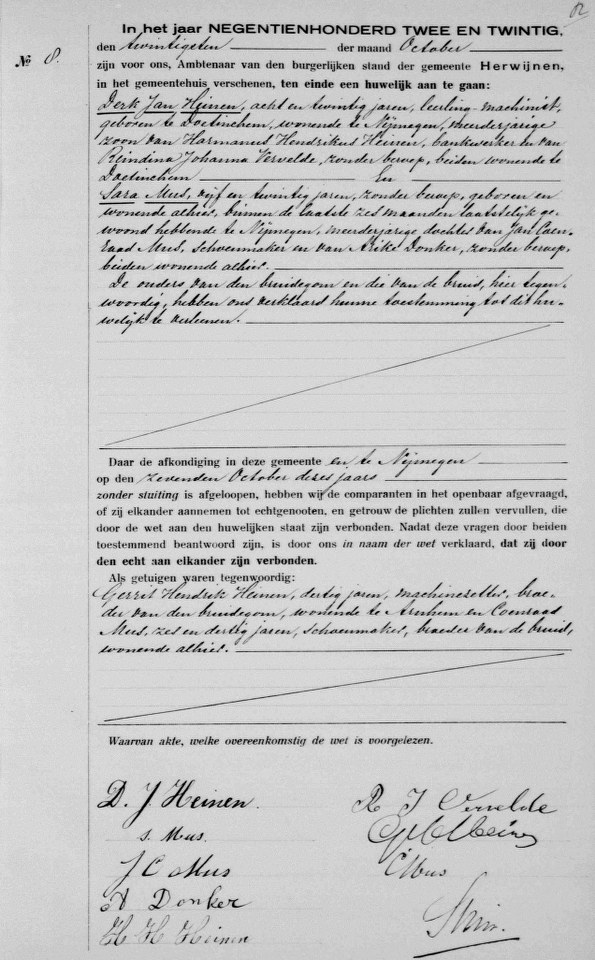 In het jaar NEGENTIENHONDERD TWEE EN TWINTIG,
den twintigsten der maand October
№ 8.
zijn voor ons, Ambtenaar van den burgerlijken stand der gemeente Herwijnen,
in het gemeentehuis verschenen, ten einde een huwelijk aan te gaan:
Derk Jan Heinen, acht en twintig jaren, leerling-machinist,
geboren te Doetinchem, wonende te Nijmegen, meerderjarige
zoon van Harmanus Hendrikus Heinen, bankwerker en van
Reindina Johanna Vervelde, zonder beroep, beiden wonende te
Doetinchem En
Sara Mus, vijf en twintig jaren, zonder beroep, geboren en
wonende alhier, binnen de laatste zes maanden laatstelijk ge-
woond hebbende te Nijmegen, meerderjarige dochter van Jan Coen-
raad Mus, schoenmaker en van Arike Donker, zonder beroep,
beiden wonende alhier.
De ouders van den bruidegom en die van de bruid, hier tegen-
woordig, hebben ons verklaard hunne toestemming tot dit hu-
welijk te verleenen.
Daar de afkondiging in deze gemeente en te Nijmegen
op den zevenden October dezes jaars
zonder stuiting is afgeloopen, hebben wij de comparanten in het openbaar afgevraagd,
of zij elkander aannemen tot echtgenooten, en getrouw de plichten zullen vervullen, die
door de wet aan den huwelijken staat zijn verbonden. Nadat deze vragen door beiden
toestemmend beantwoord zijn, is door ons in naam der wet verklaard, dat zij door
den echt aan elkander zijn verbonden.
Als getuigen waren tegenwoordig:
Gerrit Hendrik Heinen, dertig jaren, machinezetter, broe-
der van den bruidegom, wonende te Arnhem en Coenraad
Mus, zes en dertig jaren, schoenmaker, broeder van de bruid,
wonende alhier.
Waarvan akte, welke overeenkomstig de wet is voorgelezen.
D. J. Heinen. R J Vervelde
S. Mus. GH Heinen
J C Mus C Mus
A Donker
H H Heinen